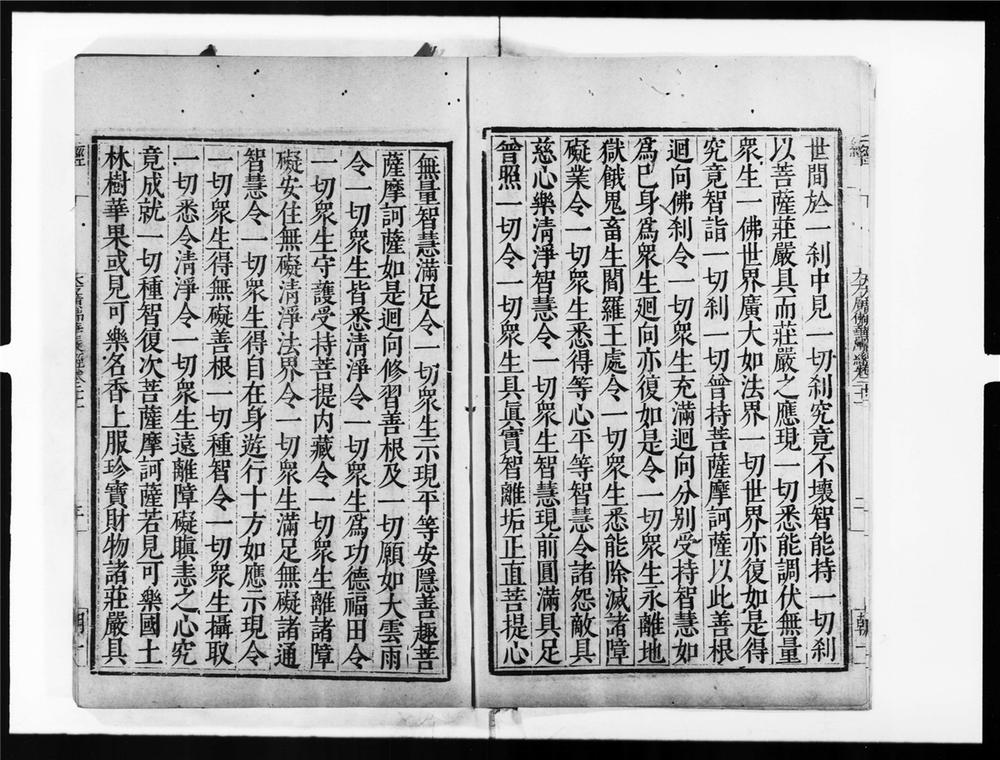 世間於一刹中見一切刹究竟不壞智能持一切刹
以菩薩莊嚴具而莊嚴之應現一切悉能調伏無量
衆生一佛世界廣大如法界一切世界亦復如是得
究竟智詣一切刹一切曾持菩薩摩訶薩以此善根
迴向佛刹令一切衆生充滿迴向分别受持智慧如
爲已身爲衆生迴向亦復如是令一切衆生永離地
獄餓鬼畜生閻羅王處令一切衆生悉能除滅諸障
礙業令一切衆生悉得等心平等智慧令諸怨敵具
慈心樂清淨智慧令一切衆生智慧現前圓滿具足
曾照一切令一切衆生具眞實智離垢正直菩提心
無量智慧滿足令一切衆生示現平等安隱善趣菩
薩摩訶薩如是迴向修習善根及一切願如大雲雨
令一切衆生皆悉清淨令一切衆生爲功德福田令
一切衆生守護受持菩提内藏令一切衆生離諸障
礙安住無礙清淨法界令一切衆生滿足無礙諸通
智慧令一切衆生得自在身遊行十方如應示現令
一切衆生得無礙善根一切種智令一切衆生攝取
一切悉令清淨令一切衆生遠離障礙瞋恚之心究
竟成就一切種智復次菩薩摩訶薩若見可樂國土
林樹華果或見可樂名香上服珍寶財物諸莊嚴具